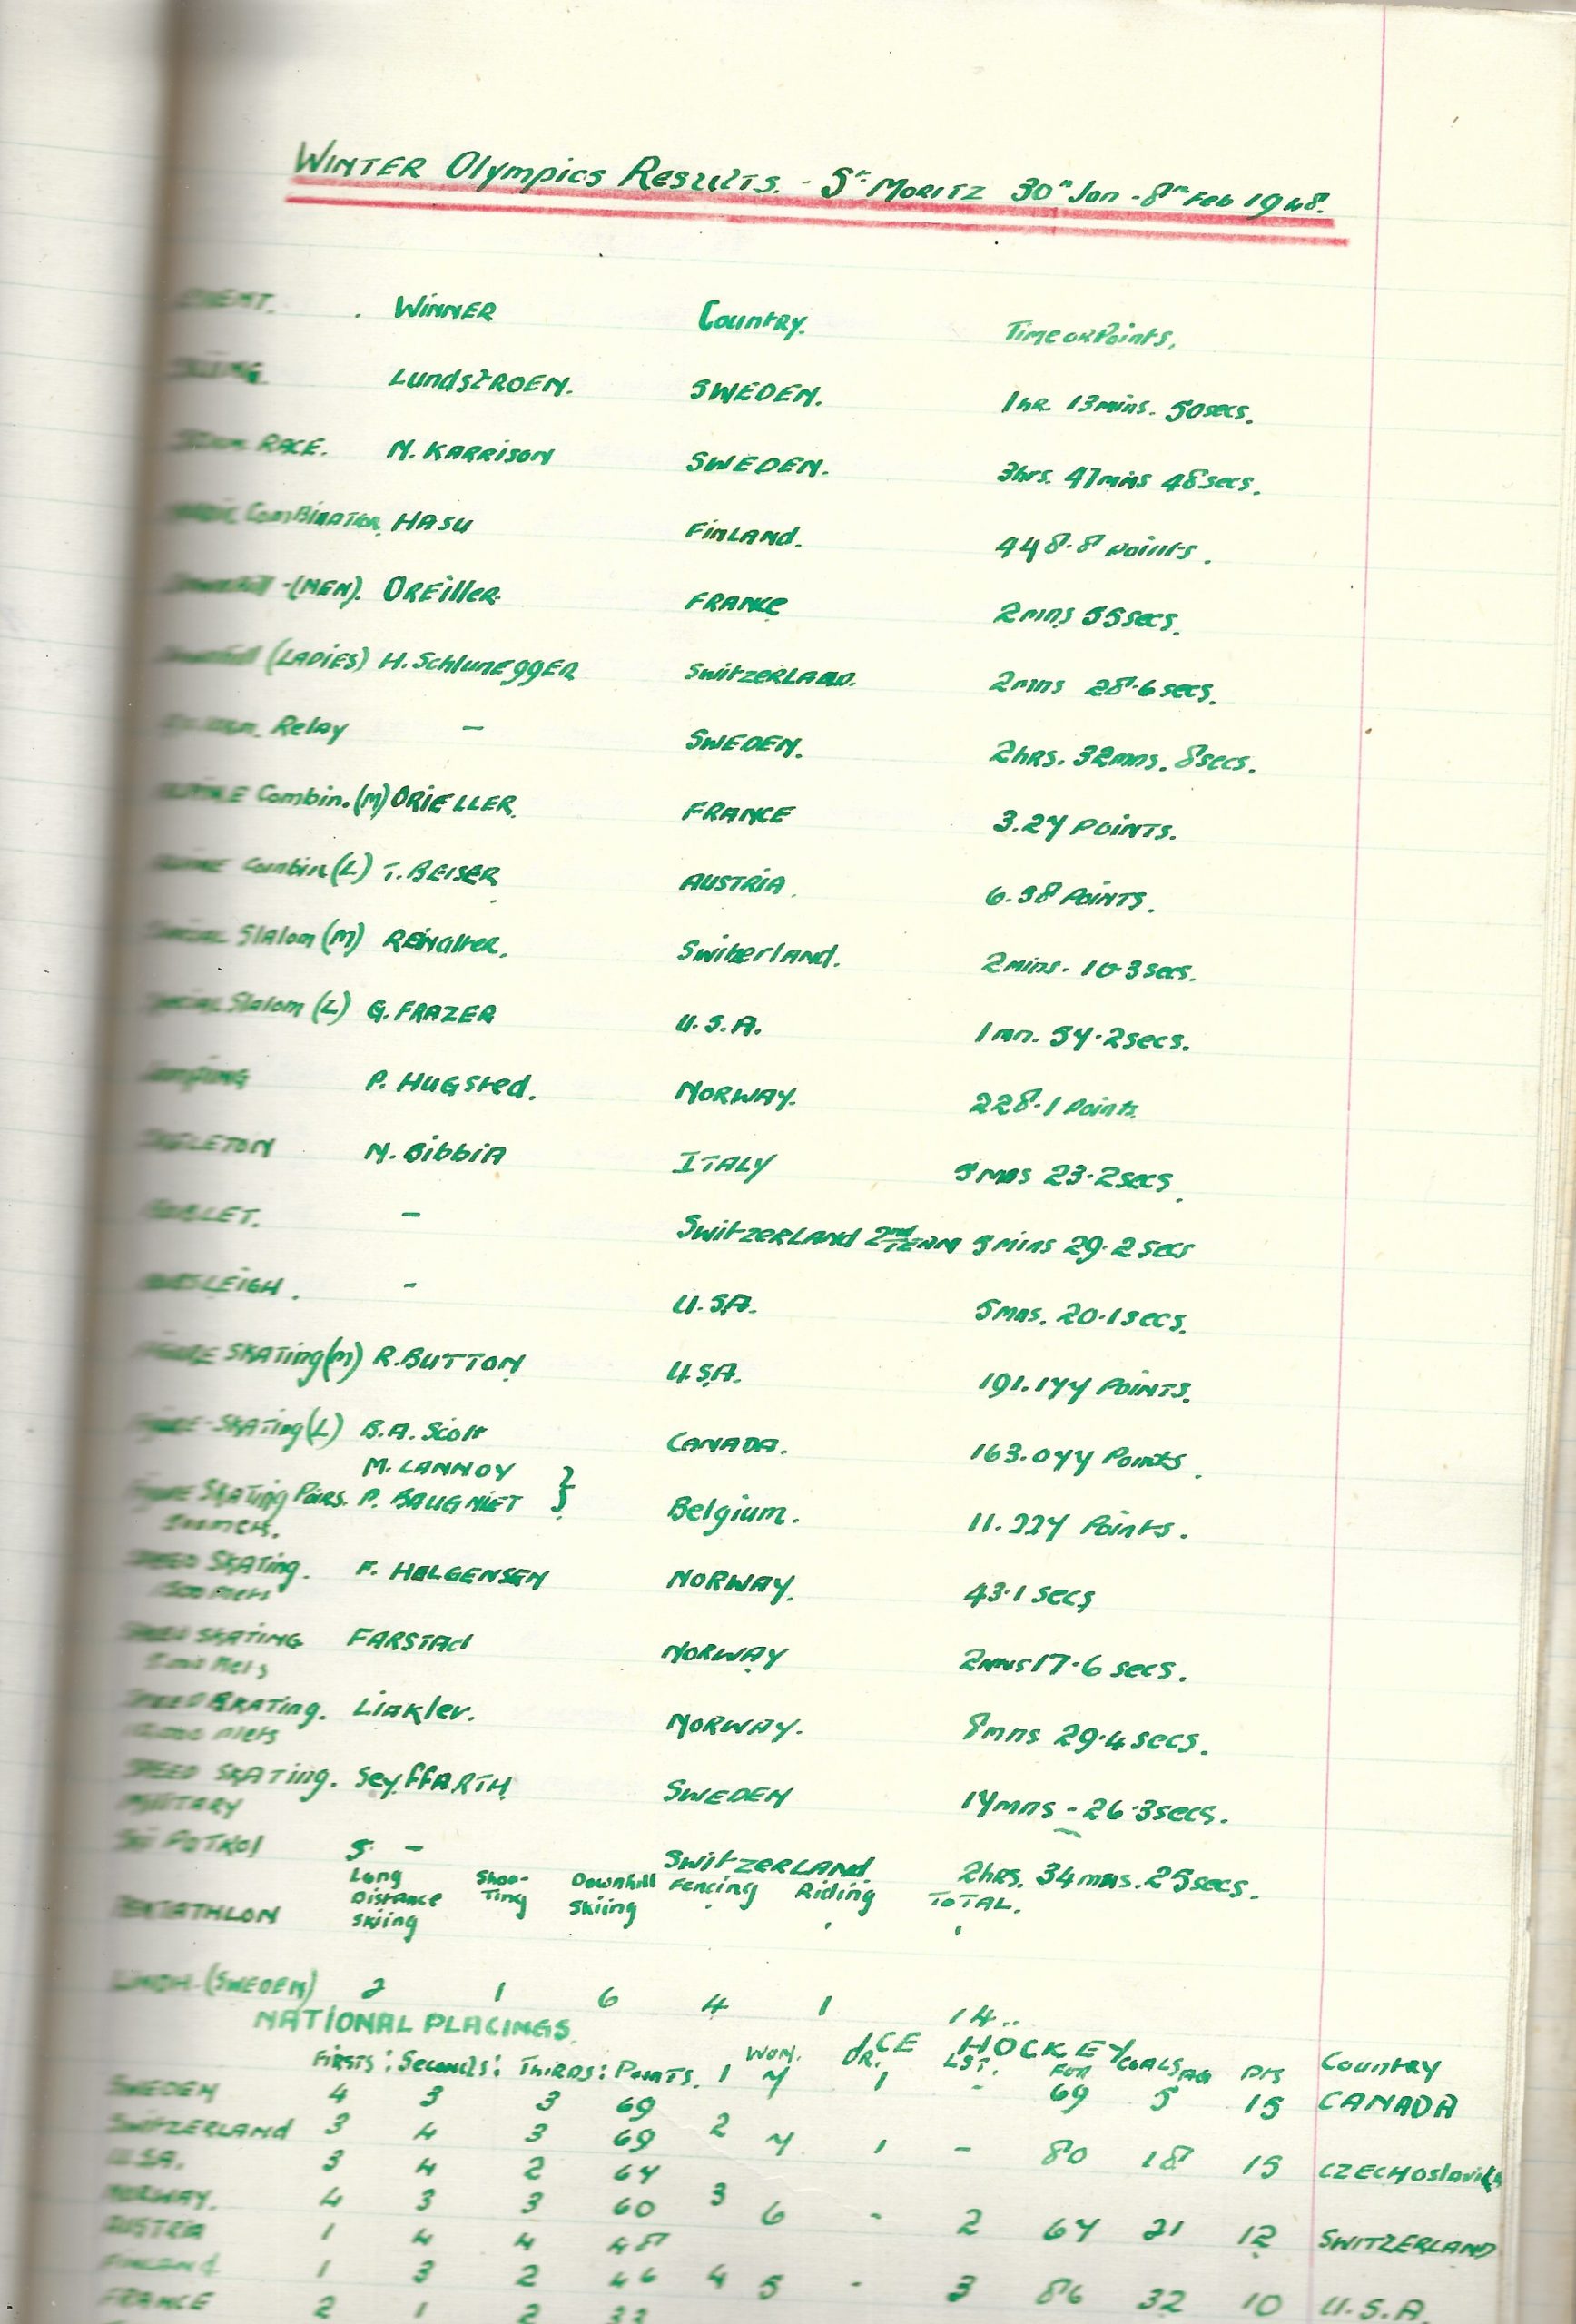 WINTER Olympics Results. - St MORITZ 30th Jan - 8th Feb 1948.
EVENT. WINNER Country. Time or Points.
LundstROEN. SWEDEN. 1hr. 13mins. 50secs.
RACE. N. KARRISON SWEDEN. 3hrs. 47mins 48secs.
Combination. HASU FINLAND. 448.8 points.
Downhill -(MEN). OREiller FRANCE 2mns 55secs.
Downhill (LADIES) H. SchlunEggER SwitzerLAND. 2mns 28.6 secs.
Relay - SWEDEN. 2hrs. 32mns. 8secs.
ALPINE Combin.(M) ORIELLER. FRANCE 3.27 POINTS.
ALPINE Combin(L) T. BEISER AUSTRIA. 6.58 POINTS.
SPECIAL Slalom (M) REinalter. Switzerland. 2mins. 10.3secs.
SPECIAL Slalom (L) G. FRAZER U.S.A. 1mn. 57.2secs.
JUMPING P. HUGSted. NORWAY. 228.1 Points.
SKELETON N. BibbiA ITALY 5mns 23.2secs.
BOBLET. - SwitzERLAND 2nd TEAM 5mins 29.2 Secs
BOBSLEIGH. - U.S.A. 5mns. 20.1secs.
FIGURE SKATing(M) R. BUTTON U.S.A. 191.177 POINTS.
FIGURE-SKATing(L) B.A. Scott CANADA. 163.077 Points.
M. LANNOY }
FIGURE SKATing Pairs. P. BAUGNIET Belgium. 11.227 Points.
500mets.
SPEED SKATing. F. HELGENSEN NORWAY. 43.1 secs
1500 Mets
SPEED SKATING FARSTAd NORWAY 2mns 17.6 secs.
5000 Mets
SPEED SKATing. Liaklev. NORWAY. 8mns 29.4secs.
10,000 mets
SPEED SKATing. SeyffARTH SWEDEN 17mns - 26.3secs.
MILITARY
SKI PATROl - SwitzERLAND 2hrs. 34mns. 25secs.
PENTATHLON Long Distance skiing Shoo-Ting Downhill skiing Fencing Riding TOTAL.
LINDH. (SWEDEN) 2 1 6 4 1 14..
NATIONAL PLACINGS. ICE HOCKEY
FIRSTS: Seconds: THIRDS: Points. WON. DR. LST. GOALS FOR AG PTS Country
SWEDEN 4 3 3 69 1 7 1 - 69 5 15 CANADA
SWITZERLAND 3 4 3 69 2 7 1 - 80 18 15 CZECHOslavika
U.S.A. 3 4 2 67
NORWAY. 4 3 3 60 3 6 - 2 67 21 12 SWITZERLAND
AUSTRIA 1 4 4 48
FINLAND 1 3 2 46 4 5 - 3 86 32 10 U.S.A.
FRANCE 2 1 2 33